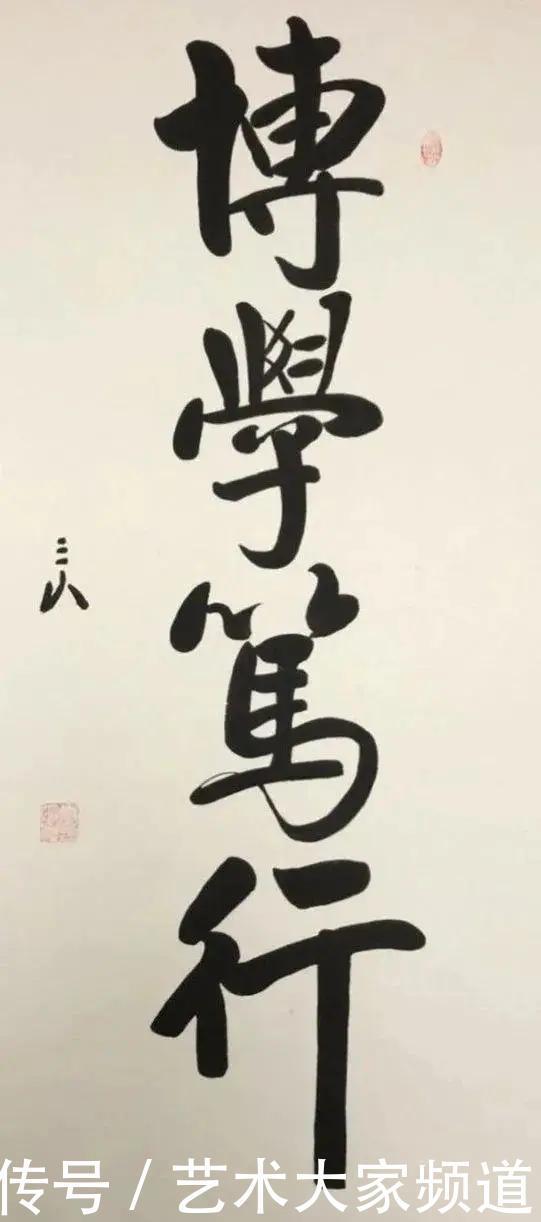 博學篤行
传号 / 艺术大家频道